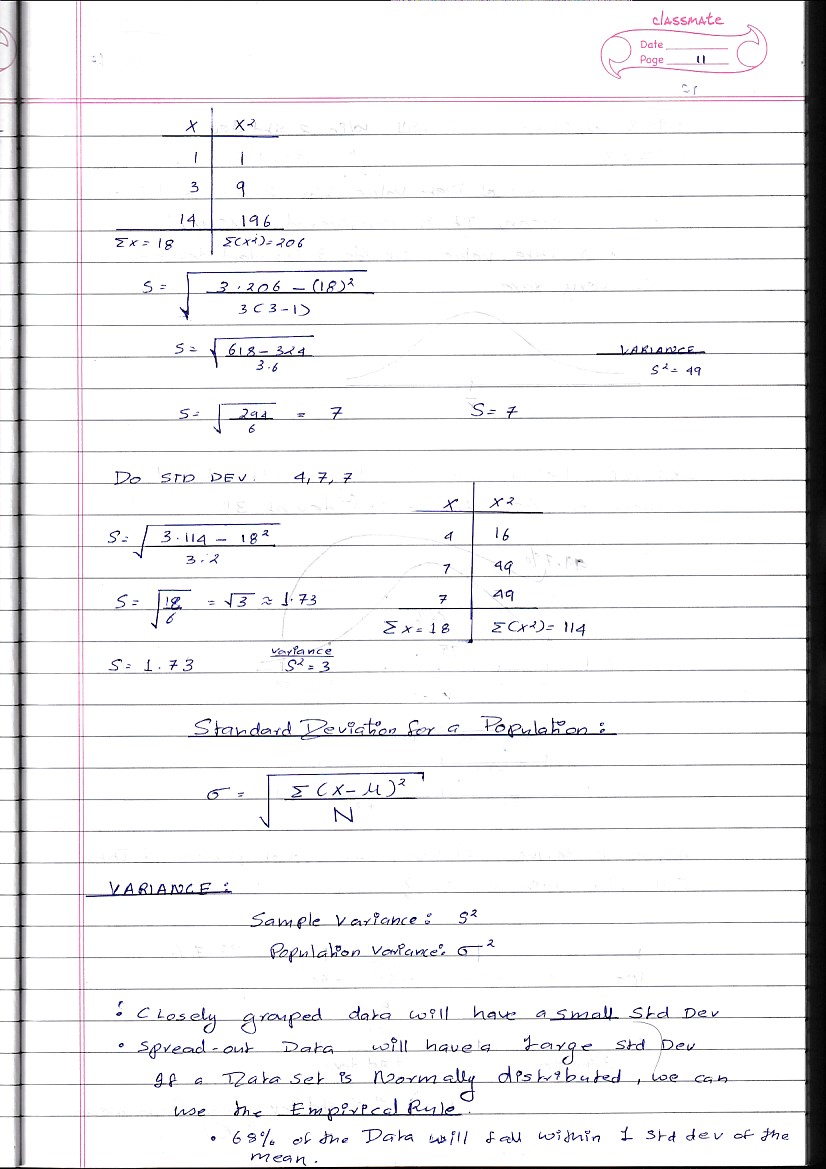 classmate
Date
Page 11
X X²
1 1
3 9
14 196
Σx = 18 Σ(x²) = 206
S = √(3·206 − (18)² / 3(3−1))
S = √(618 − 324 / 3·6)
VARIANCE
S² = 49
S = √(294 / 6) = 7 S = 7
DO STD DEV: 4, 7, 7
X X²
4 16
7 49
7 49
Σx = 18 Σ(x²) = 114
S = √(3·114 − 18² / 3·2)
S = √(18 / 6) = √3 ≈ 1.73
S = 1.73 variance S² = 3
Standard Deviation for a Population :
σ = √(Σ(X−μ)² / N)
VARIANCE :
Sample variance : S²
Population variance : σ²
: Closely grouped data will have a small Std Dev
• Spread-out Data will have a Large Std Dev
If a Data set is Normally distributed, we can
use the Empirical Rule.
• 68% of the Data will fall within 1 std dev of the
mean.